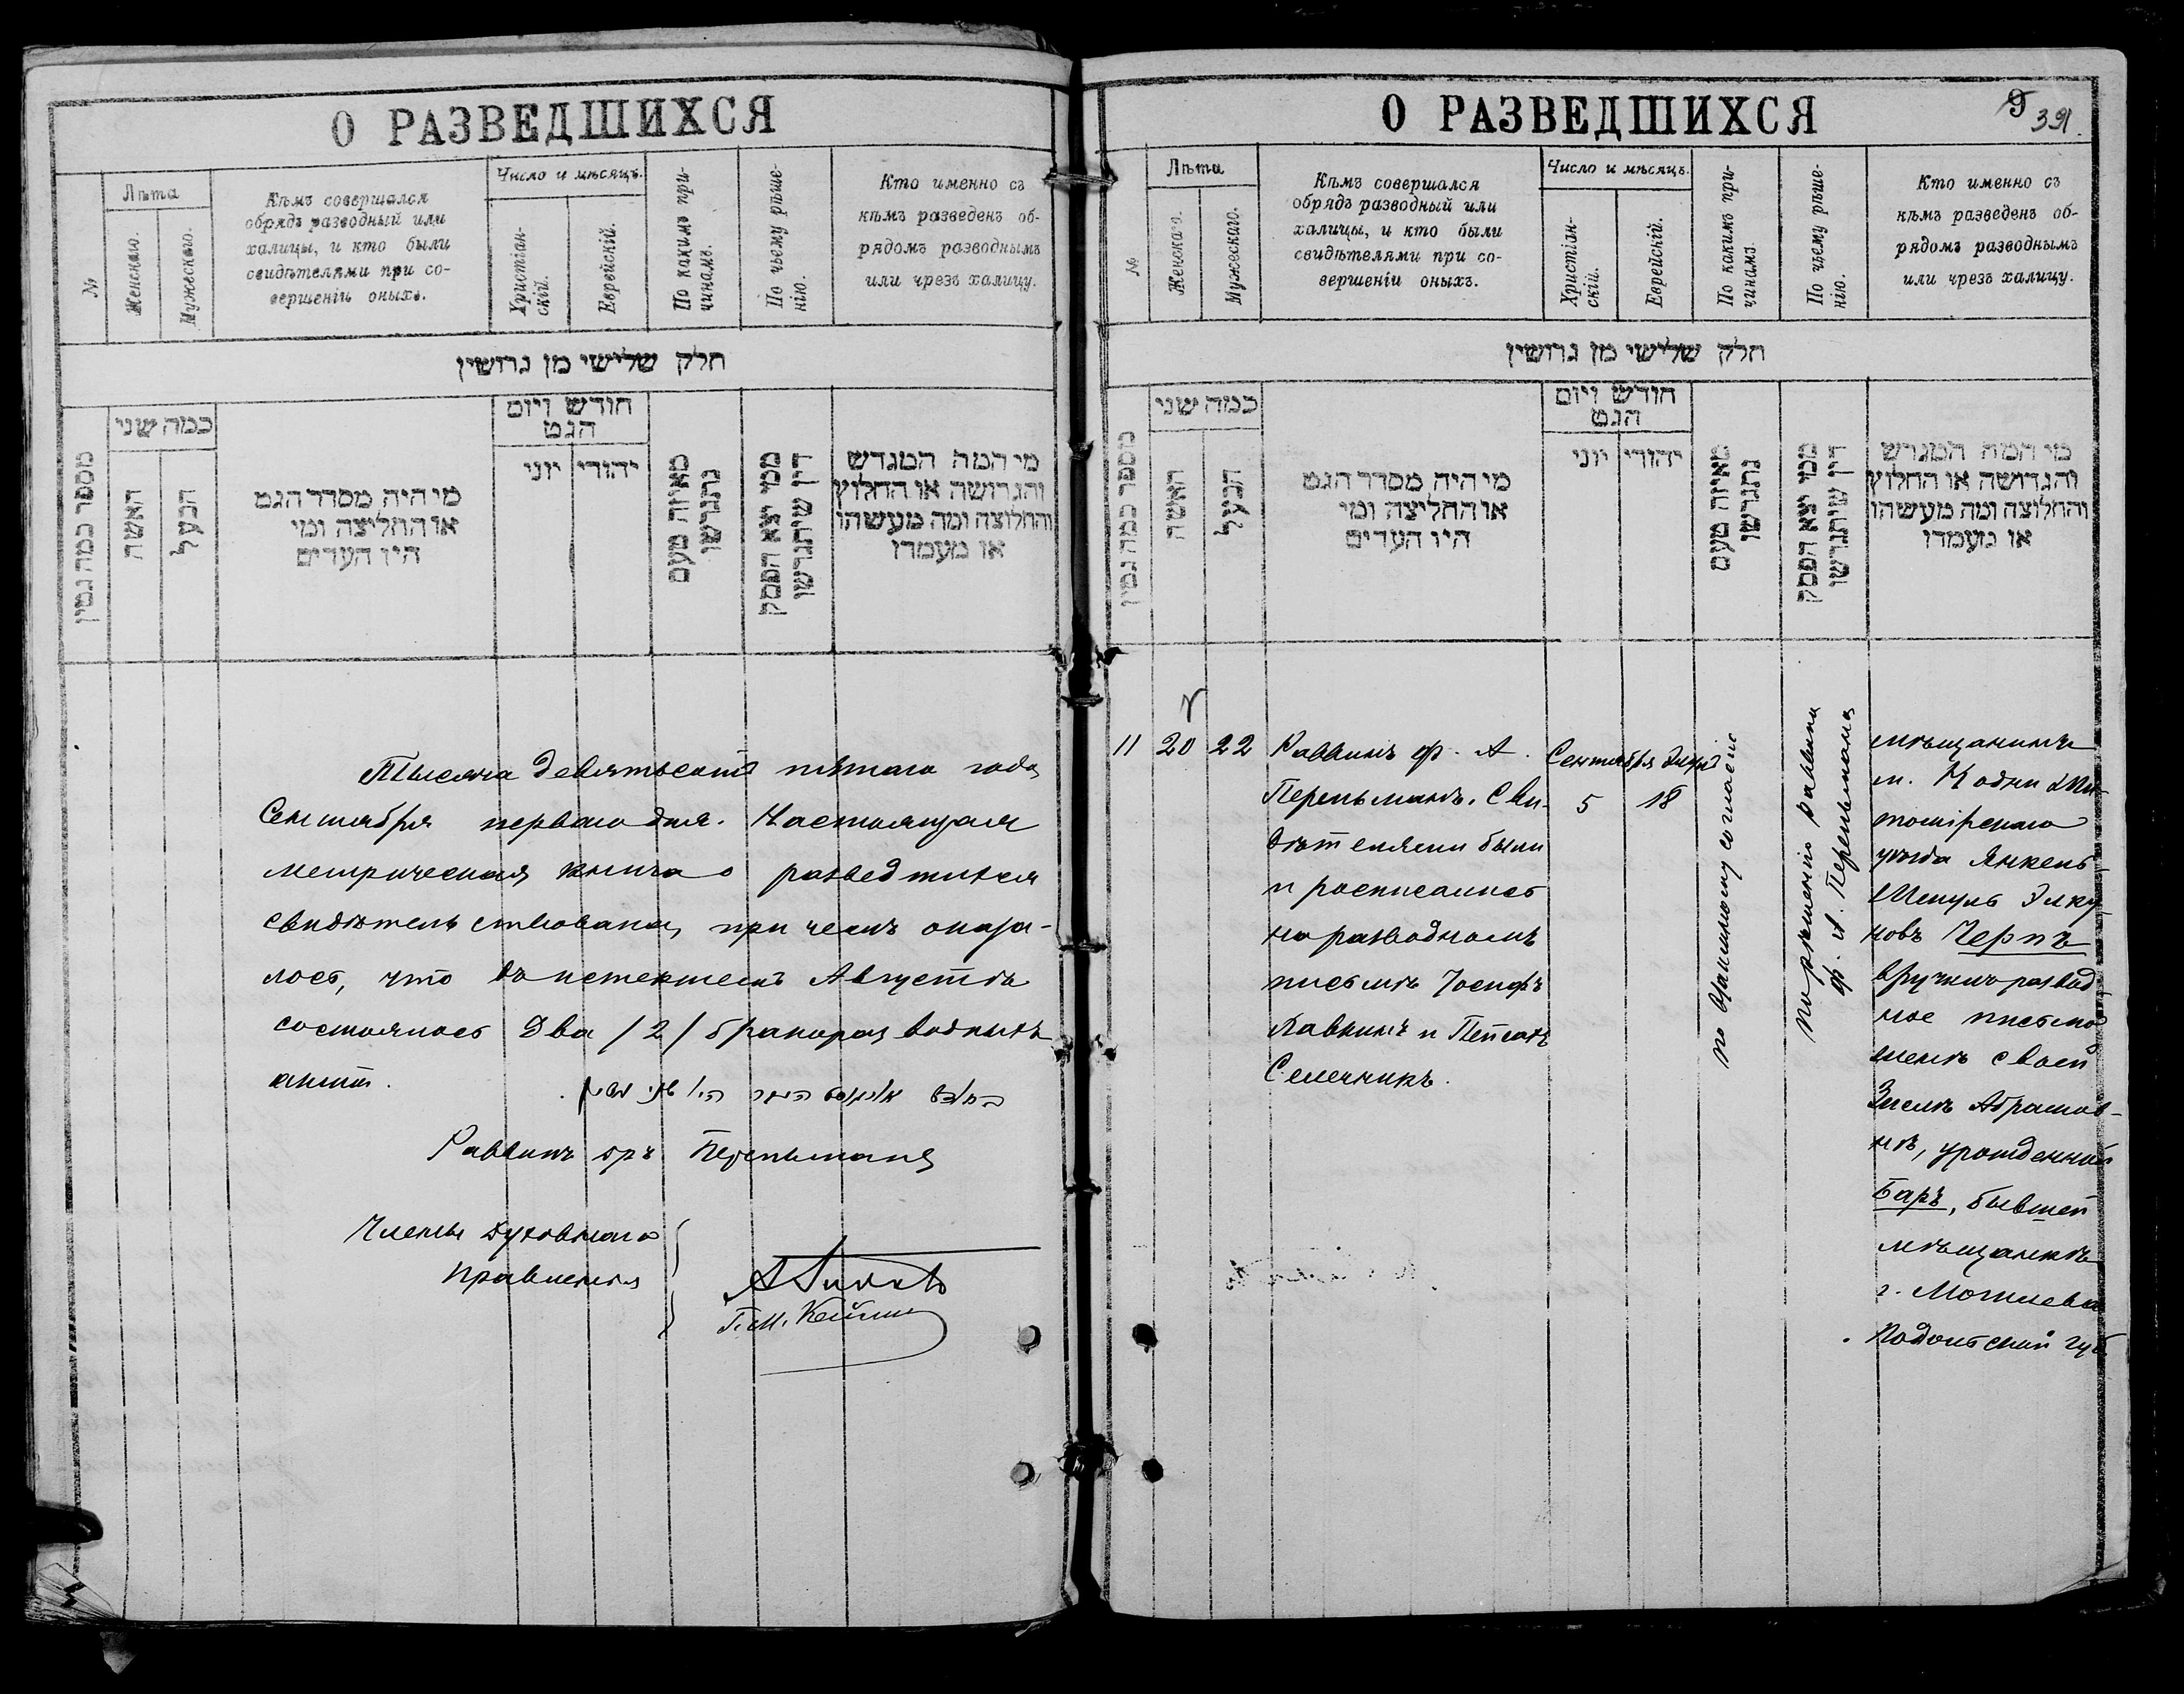 О РАЗВЕДШИХСЯ
№
Лѣта
Женскаго.
Мужескаго.
Кѣмъ совершался
обрядъ разводный или
халицы, и кто были
свидѣтелями при со-
вершеніи оныхъ.
Число и мѣсяцъ.
Христіан-
скій.
Еврейскій.
По какимъ при-
чинамъ.
По чьему рѣше-
нію.
Кто именно съ
кѣмъ разведенъ об-
рядомъ разводнымъ
или чрезъ халицу.
חלק שלישי מן גרושין
מספר כמה גטין
כמה שני
האשה
הבעל
מי היה מסדר הגט
או החליצה ומי
היו העדים
חודש ויום
הגט
יהודי
יוני
מאיזה טעם
נתגרשו
ממי יצא הפסק
דין שיתגרשו
מי המה המגרש
והגרושה או החלוץ
והחלוצה ומה מעשהו
או מעמדו
Тысяча девятьсотъ пятаго года
Сентября перваго дня. Настоящая
метрическая книга о разведшихся
свидѣтельствована, при чемъ оказа-
лось, что въ истекшемъ Августѣ
состоялось Два /2/ бракоразводныхъ
акта.
Раввинъ Перельманъ
Члены Духовнаго
Правленія
О РАЗВЕДШИХСЯ
391.
№
Лѣта
Женскаго.
Мужескаго.
Кѣмъ совершался
обрядъ разводный или
халицы, и кто были
свидѣтелями при со-
вершеніи оныхъ.
Число и мѣсяцъ.
Христіан-
скій.
Еврейскій.
По какимъ при-
чинамъ.
По чьему рѣше-
нію.
Кто именно съ
кѣмъ разведенъ об-
рядомъ разводнымъ
или чрезъ халицу.
חלק שלישי מן גרושין
מספר כמה גטין
כמה שני
האשה
הבעל
מי היה מסדר הגט
או החליצה ומי
היו העדים
חודש ויום
הגט
יהודי
יוני
מאיזה טעם
נתגרשו
ממי יצא הפסק
דין שיתגרשו
מי המה המגרש
והגרושה או החלוץ
והחלוצה ומה מעשהו
או מעמדו
11
20
22
Раввинъ ф. А.
Перельманъ. Сви-
дѣтелями были
и росписались
на разводномъ
письмѣ Іосифъ
Лавкинъ и
Селечникъ.
Сентября
5
18
по взаимному согласію
по рѣшенію раввина
ф. А. Перельмана
мѣщанинъ
м. Кодни Жи-
томірскаго
уѣзда Янкель
Шмуль Элку-
новъ Чернъ
вручилъ развод-
ное письмо
женѣ своей
Зислѣ Абрамов-
нѣ, урожденной
Баръ, бывшей
мѣщанкѣ
г. Могилева
Подольской губ.